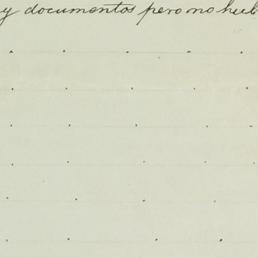 y documentos pero no hub